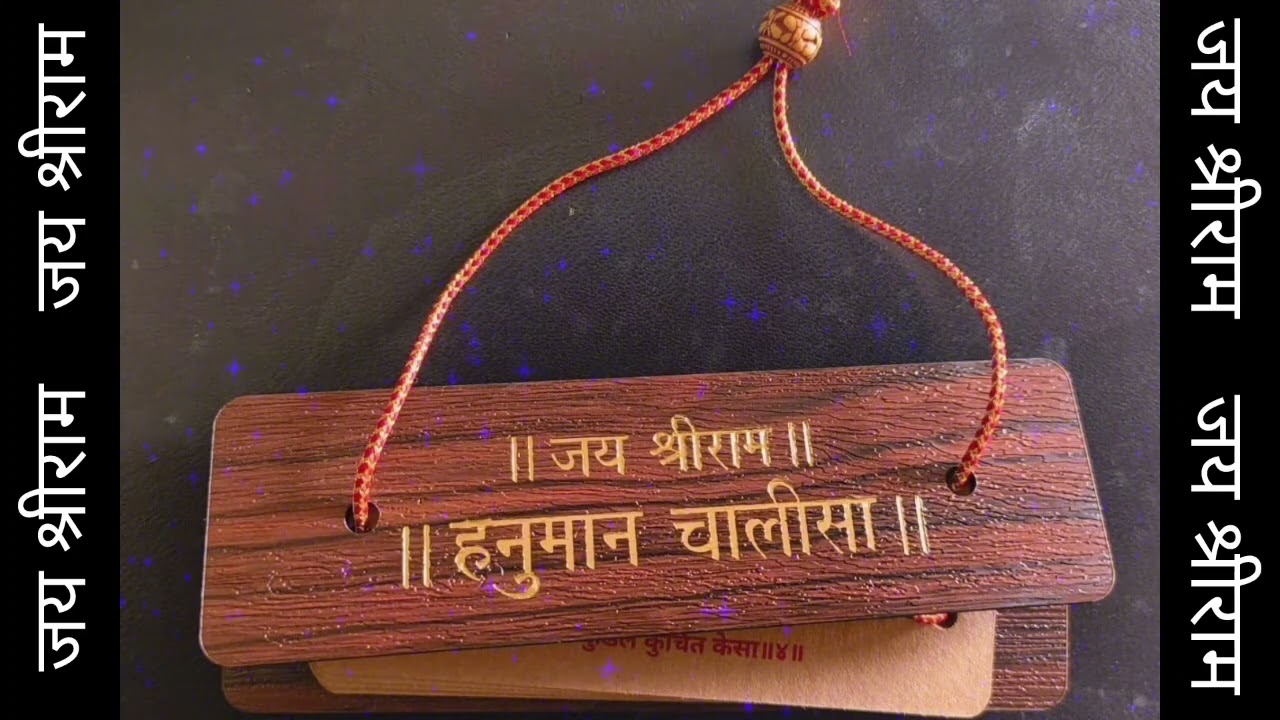 जय श्रीराम जय श्रीराम
|| जय श्रीराम ||
|| हनुमान चालीसा ||
कुंचित केसा॥४॥
जय श्रीराम जय श्रीराम